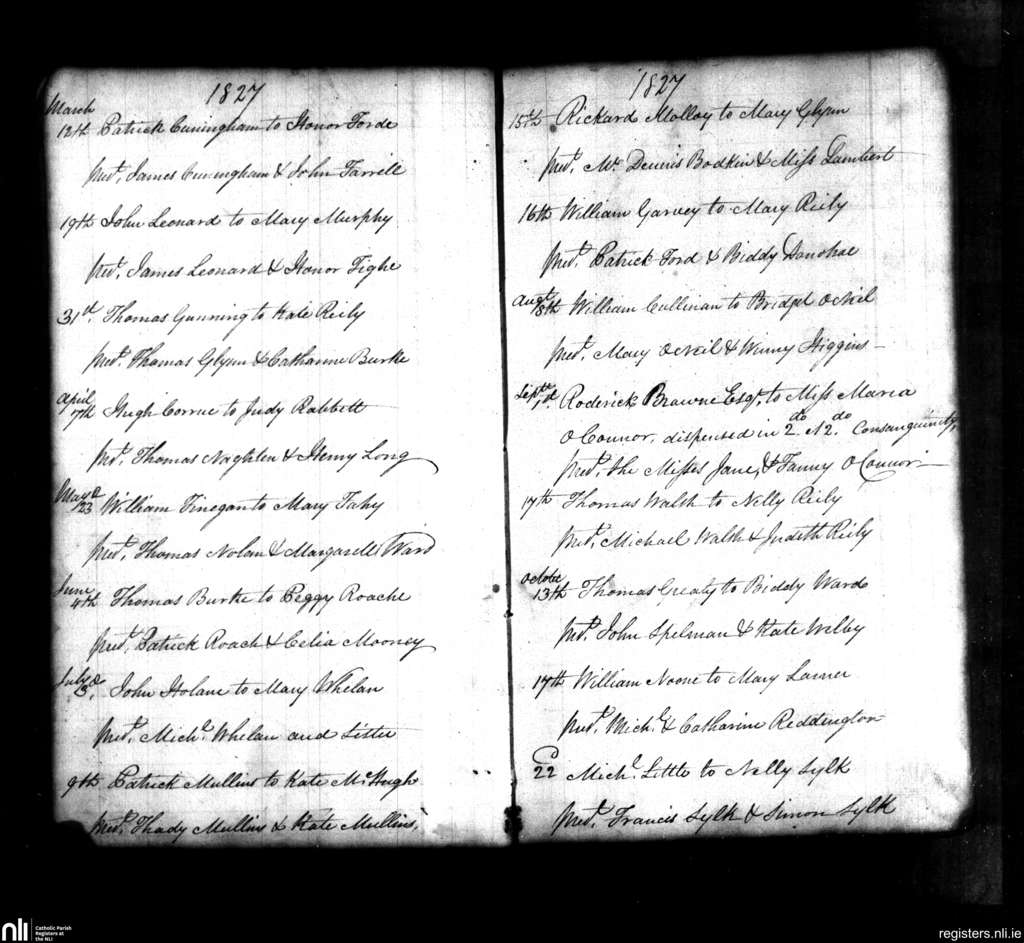 1827
March
12th Patrick Cuningham to Honor Forde
prest. James Cuningham & John Farrell
19th John Leonard to Mary Murphy
prest. James Leonard & Honor Tighe
31st. Thomas Gunning to Kate Reily
prest. Thomas Glynn & Catharine Burke
April
7th Hugh Corrue to Judy Rabbett
prest. Thomas Naghten & Henry Long
May
23 William Finegan to Mary Fahy
prest. Thomas Nolan & Margarett Ward
June
4th Thomas Burke to Peggy Roache
prest. Patrick Roach & Celia Mooney
July
3d. John Holane to Mary Whelan
prest. Michl. Whelan and Sister
9th Patrick Mullins to Kate McHugh
prest. Thady Mullins & Kate Mullins.
1827
15th Rickard Molloy to Mary Glynn
prest. Mr. Dennis Bodkin & Miss Lambert
16th William Garvey to Mary Reily
prest. Patrick Ford & Biddy Donohoe
Augt.
18th William Cullinan to Bridget O Neil
prest. Mary O Neil & Winny Higgins
Sept.
1st. Roderick Browne Esqr. to Miss Maria
O Connor, dispensed in 2do. N 2do. Consanguinity,
prest. the Misses Jane, & Fanny O Connor
17th Thomas Walsh to Nelly Reily
prest. Michael Walsh & Judith Reily
October
13th Thomas Grealy to Biddy Ward
prest. John Spelman & Kate Welby
17th William Noone to Mary Larner
prest. Michl. & Catharine Reddington
22 Michl. Little to Nelly Sylk
prest. Francis Sylk & Simon Sylk
nli Catholic Parish
Registers at
the NLI
registers.nli.ie